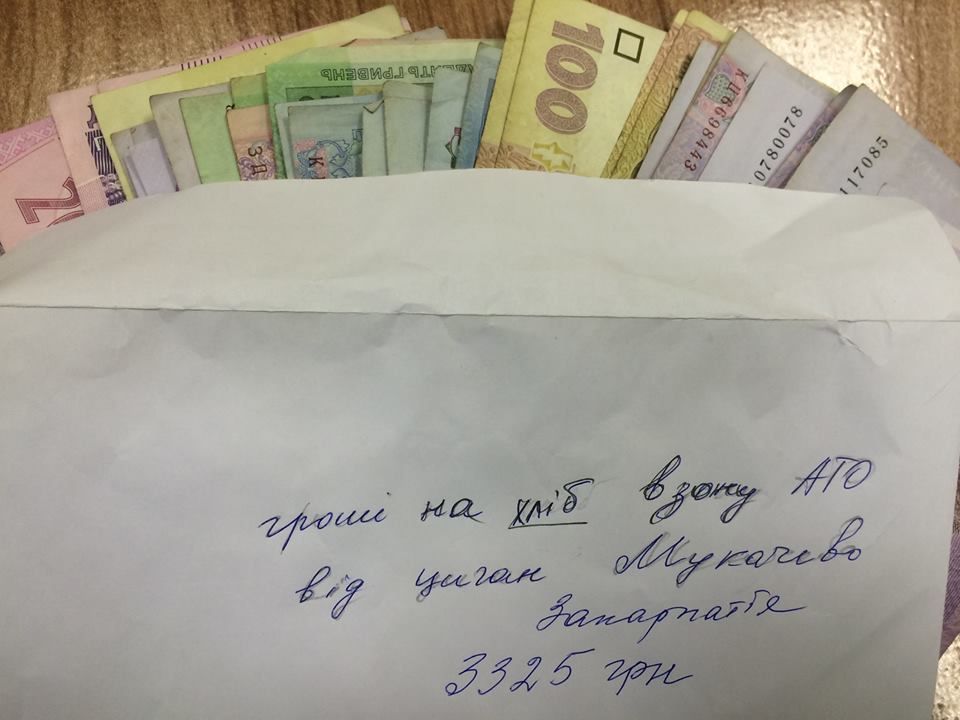 2
ДЕВЯТЬ ГРИВЕНЬ
100
КД6698443
10780078
117085
гроші на хліб в зону АТО
від циган Мукачево
Закарпаття
3325 грн